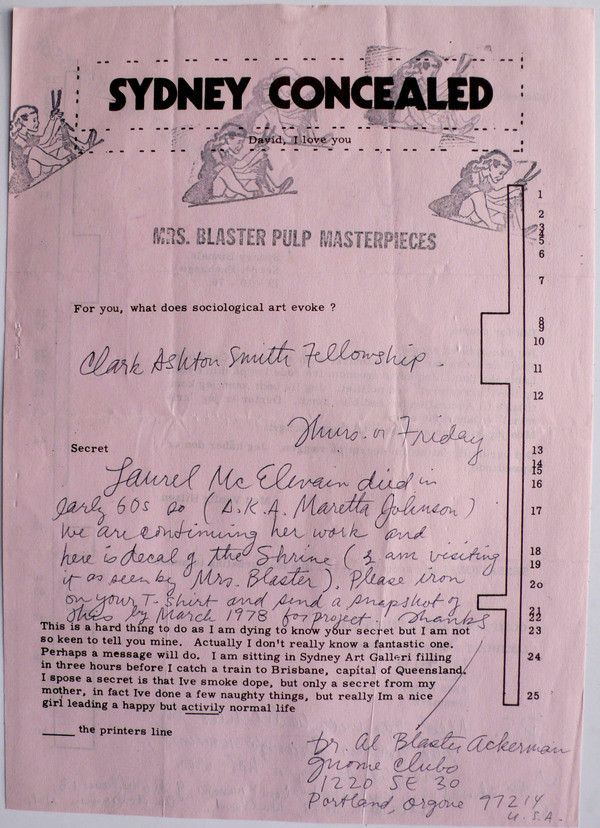 SYDNEY CONCEALED
David, I love you
MRS. BLASTER PULP MASTERPIECES
For you, what does sociological art evoke ?
Clark Ashton Smith Fellowship.
Thurs. or Friday
Secret
Laurel Mc Elevain died in
early 60s so (A.K.A. Maretta Johnson)
We are continuing her work and
here is decal of the Shrine (I am visiting
it as seen by Mrs. Blaster). Please iron
on your T-shirt and send a snapshot of
this by March 1978 for project. Thanks
This is a hard thing to do as I am dying to know your secret but I am not
so keen to tell you mine. Actually I don't really know a fantastic one.
Perhaps a message will do. I am sitting in Sydney Art Galleri filling
in three hours before I catch a train to Brisbane, capital of Queensland.
I spose a secret is that Ive smoke dope, but only a secret from my
mother, in fact Ive done a few naughty things, but really Im a nice
girl leading a happy but activily normal life
____ the printers line
Dr. Al Blaster Ackerman
Gnome Clubo
1220 SE 30
Portland, Orgone 97214
U.S.A.
1
2
3
4
5
6
7
8
9
10
11
12
13
14
15
16
17
18
19
20
21
22
23
24
25